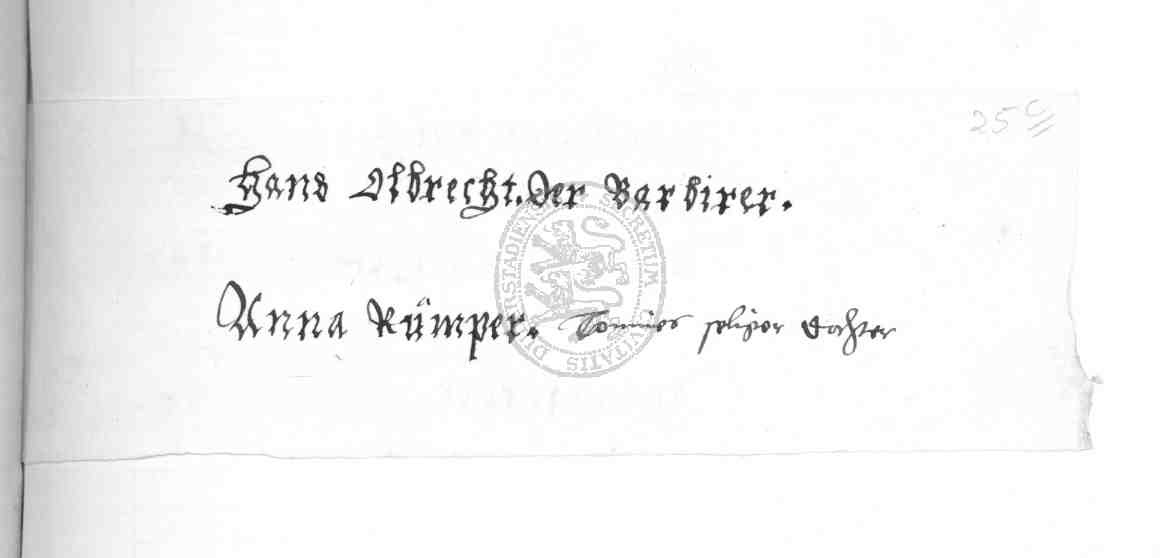 25c
Hans Olbrecht. Der Barbirer.
Anna Rümper. Tonnies seliger Dochter
SECRETUM CIVITATIS DUDERSTADIENSIS